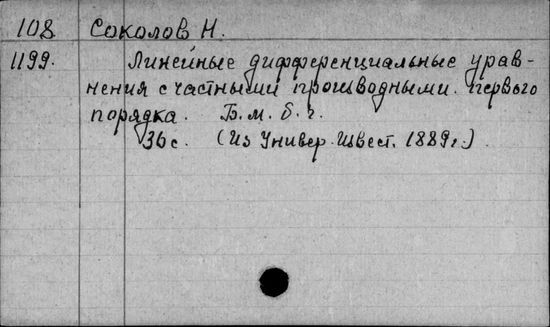 108 Соколов Н.
1199. Линейные дифференциальные урав-
нения с частными производными первого
порядка. Б. м. б. г.
36 с. (Из Универ. Извест. 1889 г.)